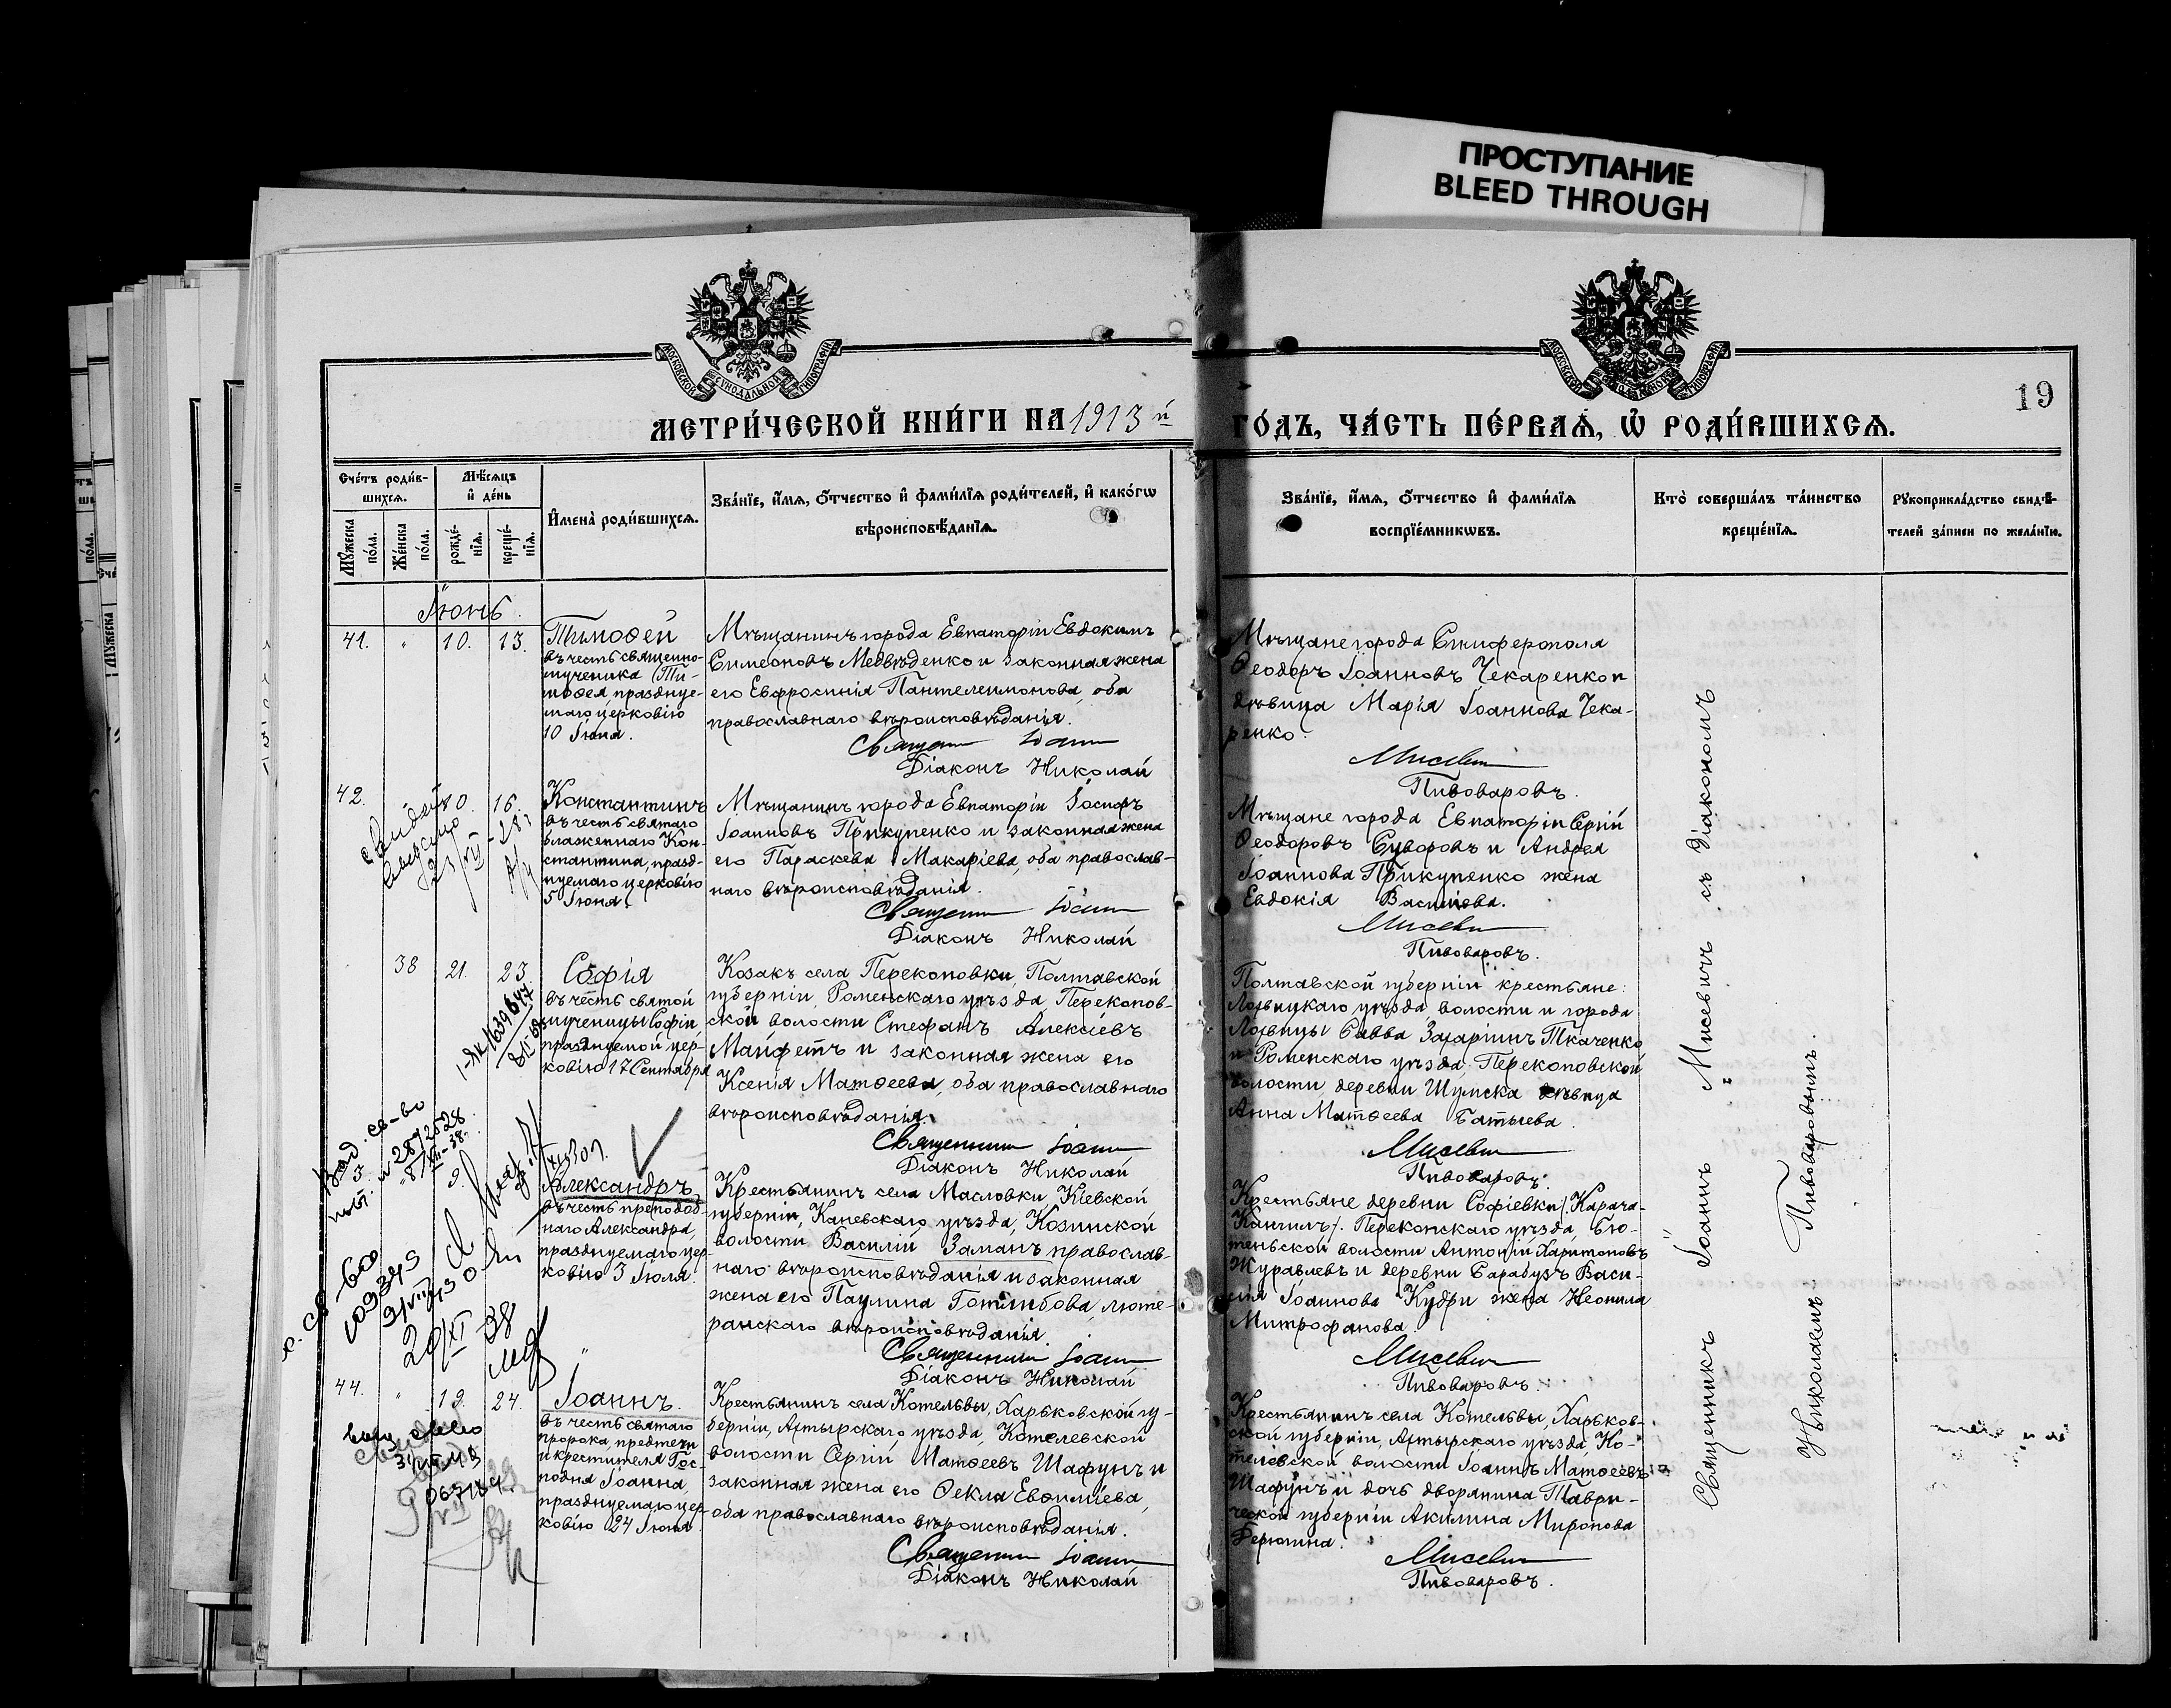 ПРОСТУПАНИЕ
BLEED THROUGH
МОСКОВСКОЙ СѴНОДАЛЬНОЙ ТИПОГРАФІИ
19
МЕТРИ́ЧЕСКОЙ КНИ́ГИ НА 1913 й ГО́ДЪ, ЧА́СТЬ ПЕ́РВАѦ, Ѡ҆ РОДИ́ВШИХСѦ.
Сче́тъ роди́в-
шихсѧ.
Мѣ́сѧцъ
и҆ де́нь
И҆мена̀ роди́вшихсѧ.
Зва́нїе, и҆́мѧ, ѻ҆́тчество и҆ фами́лїѧ роди́телей, и҆ како́гѡ
вѣроисповѣ́данїѧ.
Мꙋ́жеска
по́ла.
Же́нска
по́ла.
рожде́-
нїѧ.
креще́-
нїѧ.
Зва́нїе, и҆́мѧ, ѻ҆́тчество и҆ фами́лїѧ
воспрїе́мникѡвъ.
Кто̀ соверша́лъ та́инство
креще́нїѧ.
Рꙋкоприкла́дство свидѣ́-
телей за́писи по жела́нїю.
Іюнь.
41. " 10. 13.
Тимоѳей
въ честь священно-
мученика Ти-
моѳея праздну-
емаго церковію
10 Іюня.
Мѣщанинъ города Евпаторіи Евдокимъ
Симеоновъ Медвѣденко и законная жена
его Евфросинія Пантелеимонова, оба
православнаго вѣроисповѣданія.
Священн Іоанн
Діаконъ Николай
Мѣщане города Симферополя
Ѳеодоръ Іоанновъ Чекаренко и
дѣвица Марія Іоаннова Чека-
ренко.
Мисевич
Пивоваровъ.
42. 10. 16.
Константинъ
въ честь святаго
блаженнаго Кон-
стантина, празд-
нуемаго церковію
5 Іюня.
Мѣщанинъ города Евпаторіи Іосифъ
Іоанновъ Прикупенко и законная жена
его Параскева Макаріева, оба православ-
наго вѣроисповѣданія.
Священн Іоанн
Діаконъ Николай
Мѣщане города Евпаторіи Сергій
Ѳеодоровъ Суворовъ и Андрея
Іоаннова Прикупенко жена
Евдокія Васильева.
Мисевич
Пивоваровъ.
38 21. 23.
Софія
въ честь святой
мученицы Софіи,
празднуемой цер-
ковію 17 Сентября
Козакъ села Перекоповки, Полтавской
губерніи, Роменскаго уѣзда Перекопов-
ской волости Стефанъ Алексіевъ
Майфетъ и законная жена его
Ксенія Матѳеева, оба православнаго
вѣроисповѣданія.
Священник Іоанн
Діаконъ Николай
Полтавской губерніи крестьяне:
Лохвицкаго уѣзда волости и города
Лохвицы Савва Захаріинъ Ткаченко
и Роменскаго уѣзда Перекоповской
волости деревни Шумска дѣвица
Анна Матѳеева
Мисевич
Пивоваровъ.
Александръ
въ честь преподоб-
наго Александра,
празднуемаго цер-
ковію 3 Іюля.
Крестьянинъ села Масловки, Кіевской
губерніи, Каневскаго уѣзда, Козинской
волости Василій Заманъ православ-
наго вѣроисповѣданія и законная
жена его Паулина Готлибова, люте-
ранскаго вѣроисповѣданія.
Священник Іоанн
Діаконъ Николай
Крестьяне деревни Софіевки /Карача-
Кангилъ/ Перекопскаго уѣзда, Бю-
теньской волости Антоній Харитоновъ
Журавлевъ и деревни Сарабузъ Васи-
лія Іоаннова Кудри жена Неонила
Митрофанова.
Мисевич
Пивоваровъ.
44. " 19. 24.
Іоаннъ.
въ честь святаго
пророка, предтечи
и крестителя Гос-
подня Іоанна,
празднуемаго цер-
ковію 24 Іюня.
Крестьянинъ села Котельвы, Харьковской гу-
берніи, Ахтырскаго уѣзда, Котелевской
волости Сергій Матѳеевъ Шафунъ и
законная жена его Ѳекла Евѳиміева,
оба православнаго вѣроисповѣданія.
Священн Іоанн
Діаконъ Николай
Крестьянинъ села Котельвы, Харьков-
ской губерніи, Ахтырскаго уѣзда, Ко-
телевской волости Іоаннъ Матѳеевъ
Шафунъ и дочь дворянина Таври-
ческой губерніи Акилина Миронова
Мисевич
Пивоваровъ.
Священникъ Іоаннъ Мисевичъ съ діакономъ
Николаемъ Пивоваровымъ.